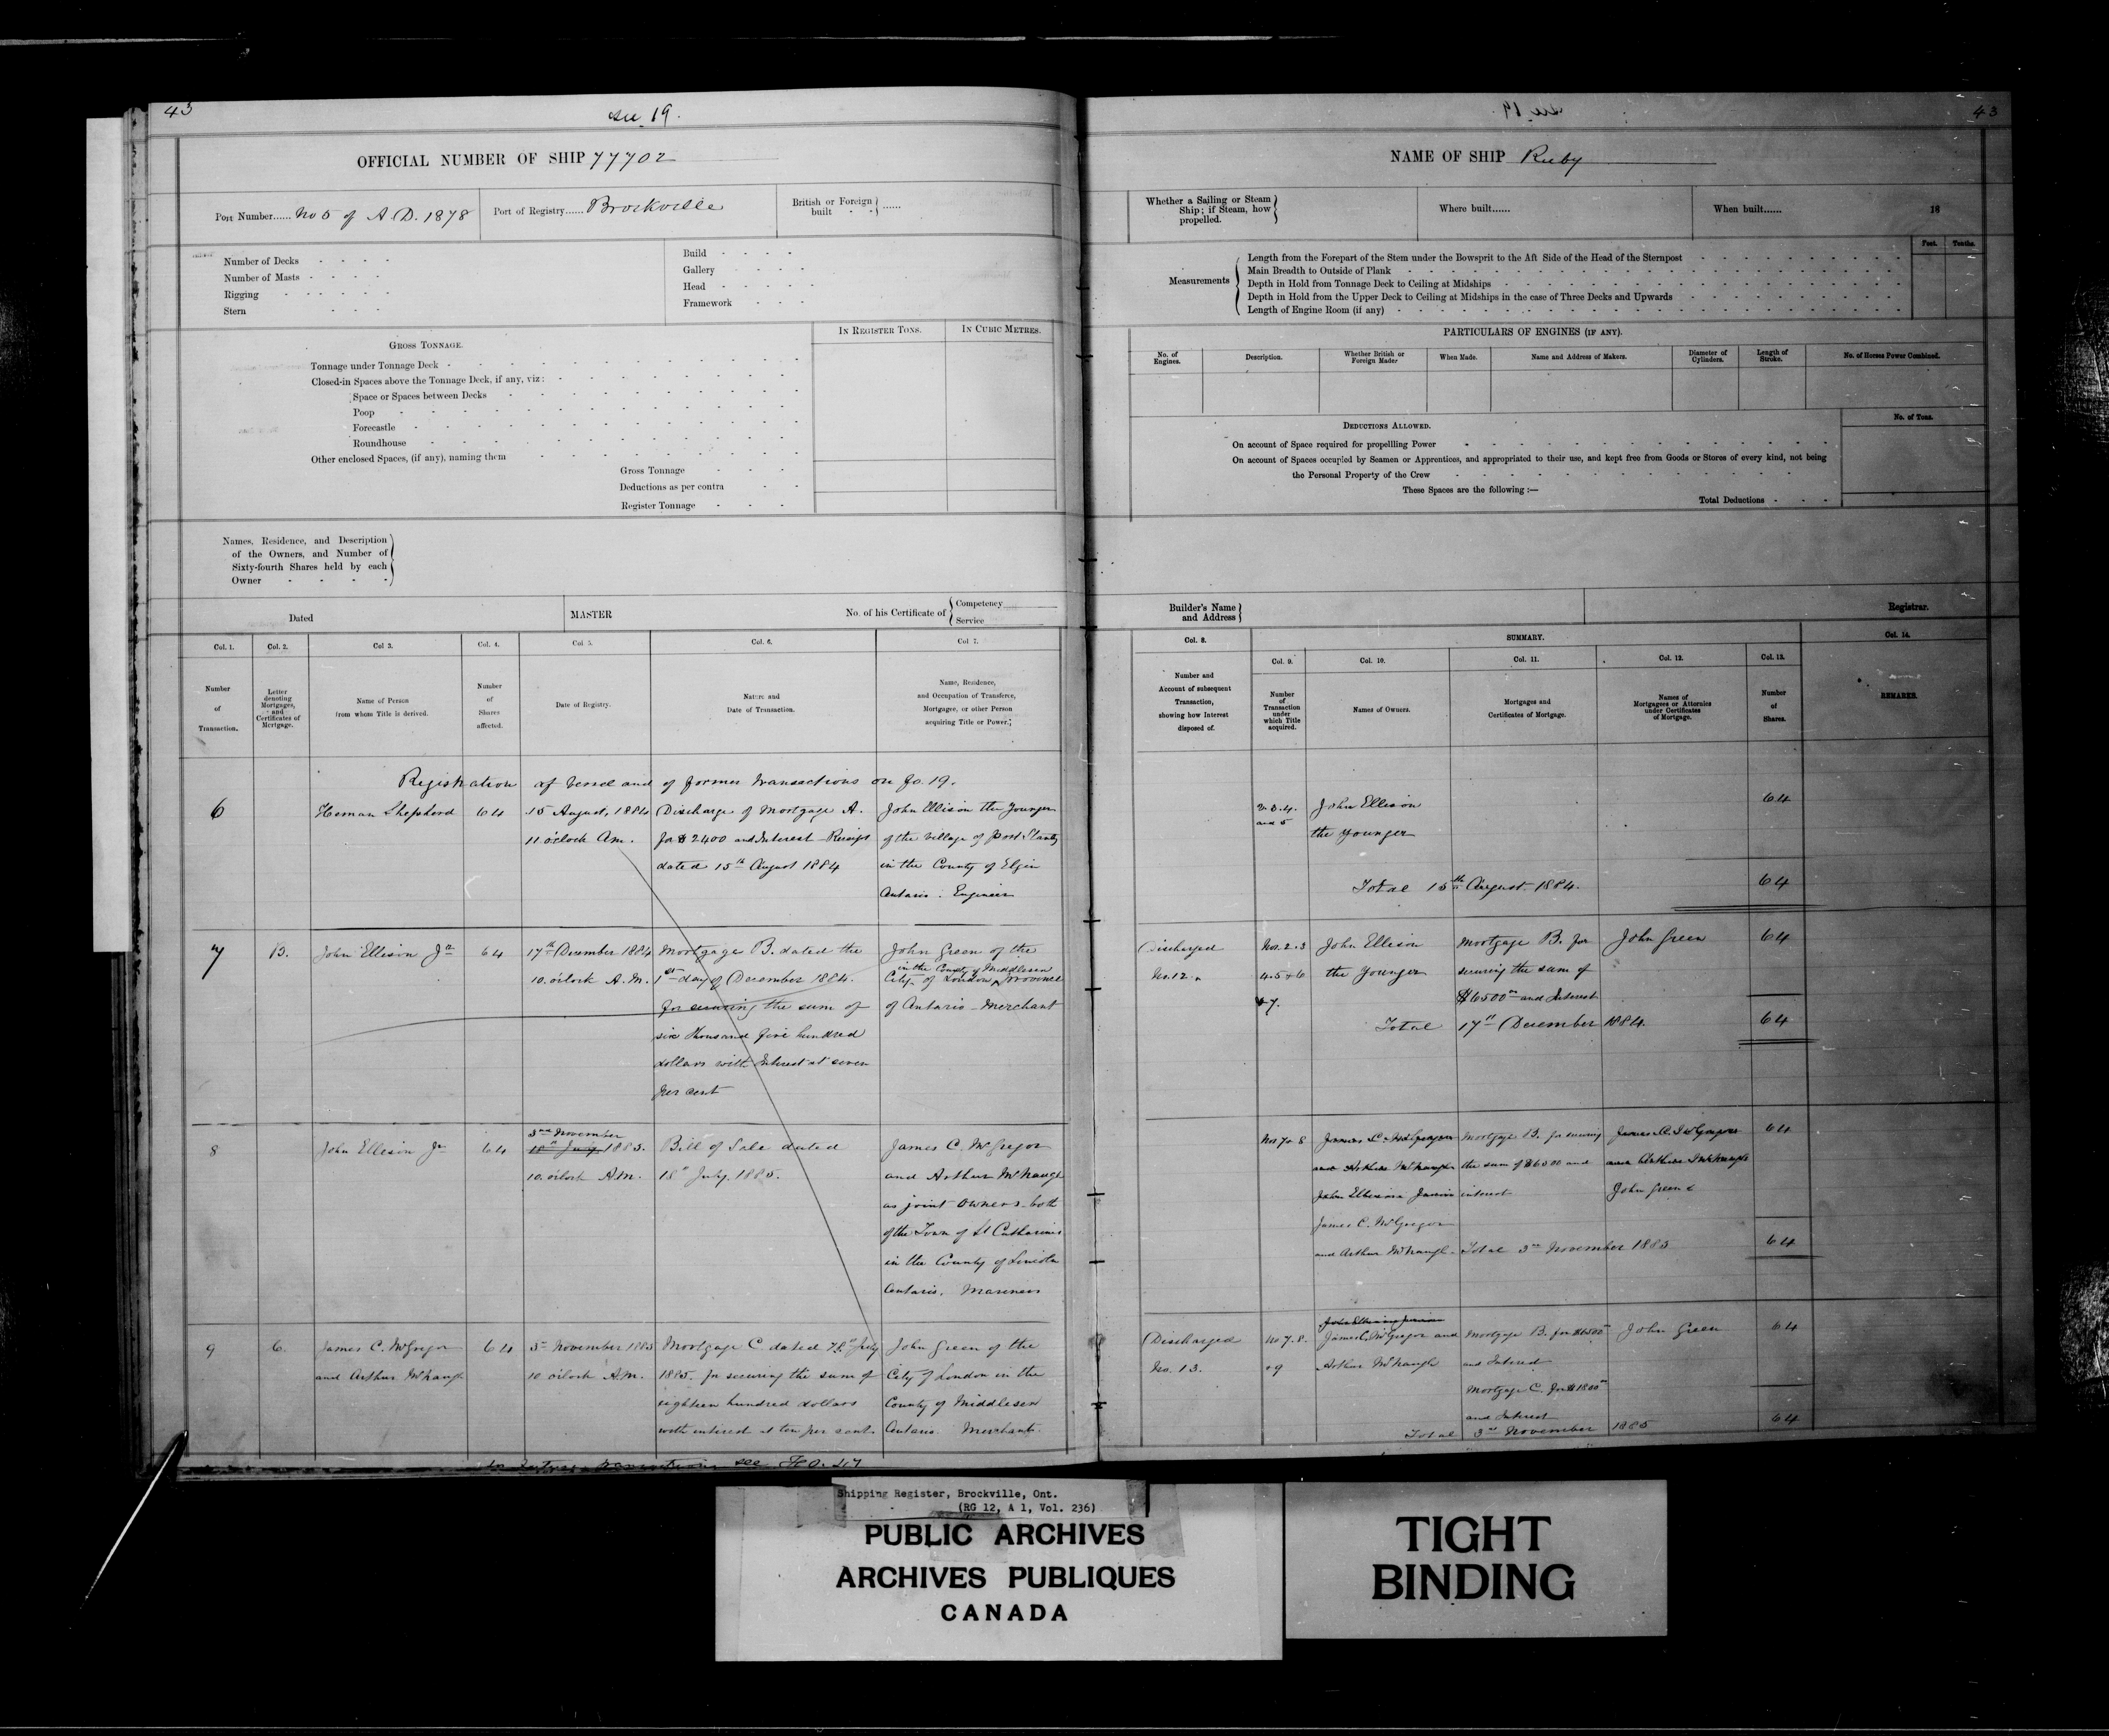 43
see 19.
OFFICIAL NUMBER OF SHIP 77702
Port Number...... No 5 of A.D. 1878
Port of Registry...... Brockville
British or Foreign built - - ......
Number of Decks - - - -
Number of Masts - - - -
Rigging - - - - -
Stern - - -
Build - - - -
Gallery - - - -
Head - - - - -
Framework - - -
IN REGISTER TONS.
IN CUBIC METRES.
GROSS TONNAGE.
Tonnage under Tonnage Deck -
Closed-in Spaces above the Tonnage Deck, if any, viz:
Space or Spaces between Decks
Poop
Forecastle
Roundhouse
Other enclosed Spaces, (if any), naming them
Gross Tonnage
Deductions as per contra
Register Tonnage
Names, Residence, and Description
of the Owners, and Number of
Sixty-fourth Shares held by each
Owner - - - -
Dated
MASTER
No. of his Certificate of
Competency
Service
Col. 1.
Col. 2.
Col 3.
Col. 4.
Col 5.
Col. 6.
Col 7.
Number
of
Transaction.
Letter
denoting
Mortgages,
and
Certificates of
Mortgage.
Name of Person
from whom Title is derived.
Number
of
Shares
affected.
Date of Registry.
Nature and
Date of Transaction.
Name, Residence,
and Occupation of Transferee,
Mortgagee, or other Person
acquiring Title or Power.
Registration of Vessel and of former transactions on fo. 19.
6
Heman Shepherd
64
15 August, 1884
11 o'clock Am.
Discharge of Mortgage A.
for $2400 and Interest Receipt
dated 15th August 1884
John Ellison the Younger
of the Village of Port Stanley
in the County of Elgin
Ontario. Engineer
7
B.
John Ellison Jr
64
17th December 1884
10. o'clock A.M.
Mortgage B. dated the
1st day of December 1884.
for securing the sum of
six thousand five hundred
dollars with Interest at seven
per cent
John Green of the
in the County of Middlesex
City of London Province
of Ontario - Merchant
8
John Ellison Jr
64
3rd November
18th July 1885.
10. o'clock A.M.
Bill of Sale dated
18th July. 1885.
James C. McGregor
and Arthur McHaugh
as joint Owners - both
of the Town of St Catharines
in the County of Lincoln
Ontario. Mariners
9
C.
James C. McGregor
and Arthur McHaugh
64
10 o'clock A.M.
Mortgage C dated
1885. for securing the sum of
eighteen hundred dollars
with interest at ten per cent.
John Green of the
City of London in the
County of Middlesex
Ontario. Merchant.
see Fo. 47
43
NAME OF SHIP Ruby
Whether a Sailing or Steam
Ship; if Steam, how
propelled.
Where built......
When built......
18
Feet.
Tenths.
Measurements
Length from the Forepart of the Stem under the Bowsprit to the Aft Side of the Head of the Sternpost
Main Breadth to Outside of Plank
Depth in Hold from Tonnage Deck to Ceiling at Midships
Depth in Hold from the Upper Deck to Ceiling at Midships in the case of Three Decks and Upwards
Length of Engine Room (if any)
PARTICULARS OF ENGINES (IF ANY).
No. of
Engines.
Description.
Whether British or
Foreign Made
When Made.
Name and Address of Makers.
Diameter of
Cylinders.
Length of
Stroke.
No. of Horses Power Combined.
DEDUCTIONS ALLOWED.
No. of Tons.
On account of Space required for propellling Power
On account of Spaces occupied by Seamen or Apprentices, and appropriated to their use, and kept free from Goods or Stores of every kind, not being
the Personal Property of the Crew
These Spaces are the following :—
Total Deductions - - -
Builder's Name
and Address
Registrar.
Col. 8.
SUMMARY.
Col. 14.
Col. 9.
Col. 10.
Col. 11.
Col. 12.
Col. 13.
Number and
Account of subsequent
Transaction,
showing how Interest
disposed of.
Number
of
Transaction
under
which Title
acquired.
Names of Owners.
Mortgages and
Certificates of Mortgage.
Names of
Mortgagees or Attornies
under Certificates
of Mortgage.
Number
of
Shares.
REMARKS.
2. 3. 4.
and 5
John Ellison
the younger
64
Total 15th August 1884.
64
Discharged
No. 12.
Nos. 2. 3
4. 5 & 6
& 7.
John Ellison
the Younger
Mortgage B. for
securing the sum of
$6500 and Interest
John Green
64
Total 17th December 1884.
64
Nos 7 & 8
James C. McGregor
and Arthur McHaugh
John Ellison Junior
James C. McGregor
and Arthur McHaugh
Mortgage B. for securing
the sum of $6500 and
interest
James C. McGregor
and Arthur McHaugh
John Green
64
Total 3rd November 1885
64
Discharged
No. 13.
No 7. 8.
& 9
John Ellison Junior
James C. McGregor and
Arthur McHaugh
Mortgage B. for $6500
and Interest
Mortgage C. for $1800
and Interest
John Green
64
Total 3rd November 1885
64
Shipping Register, Brockville, Ont.
(RG 12, A 1, Vol. 236)
PUBLIC ARCHIVES
ARCHIVES PUBLIQUES
CANADA
TIGHT
BINDING